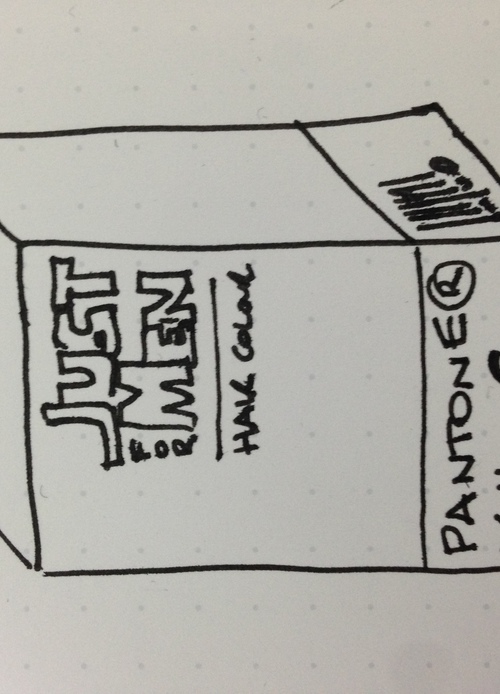 JUST
FOR MEN
HAIR COLOR
PANTONE®